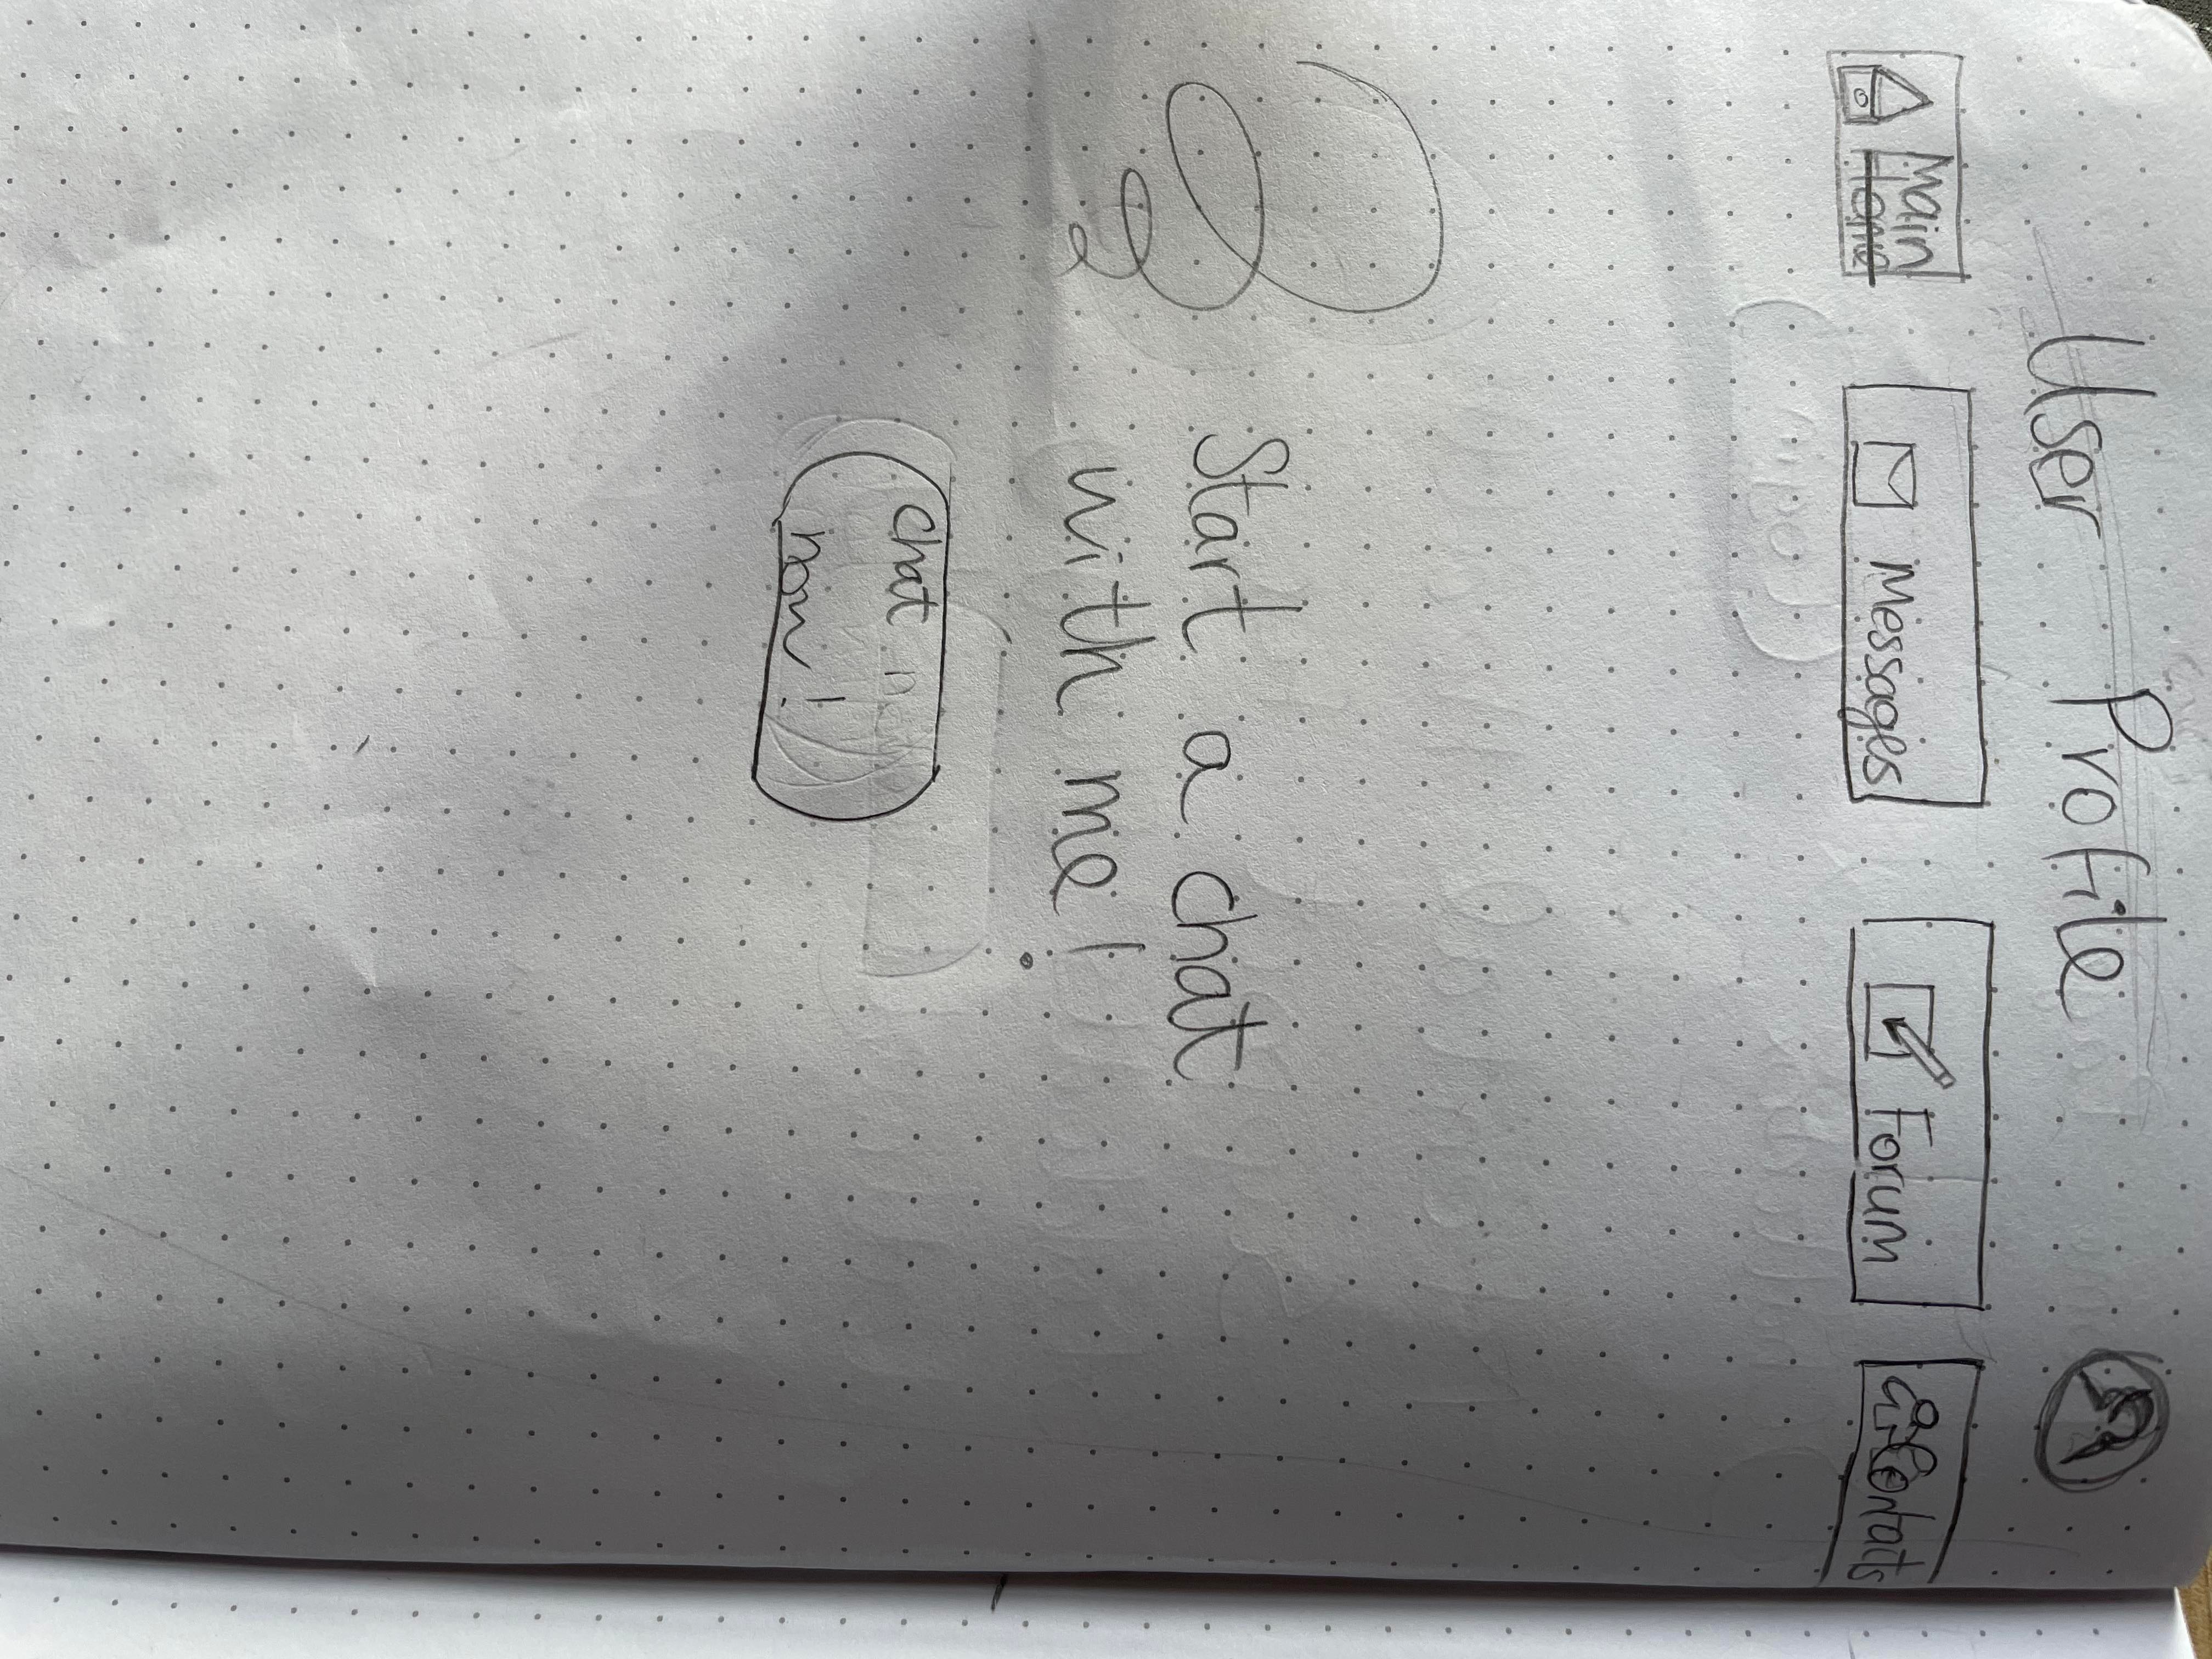 User Profile
Main
Home
Messages
Forum
Contacts
Start a chat
with me!
Chat
now!